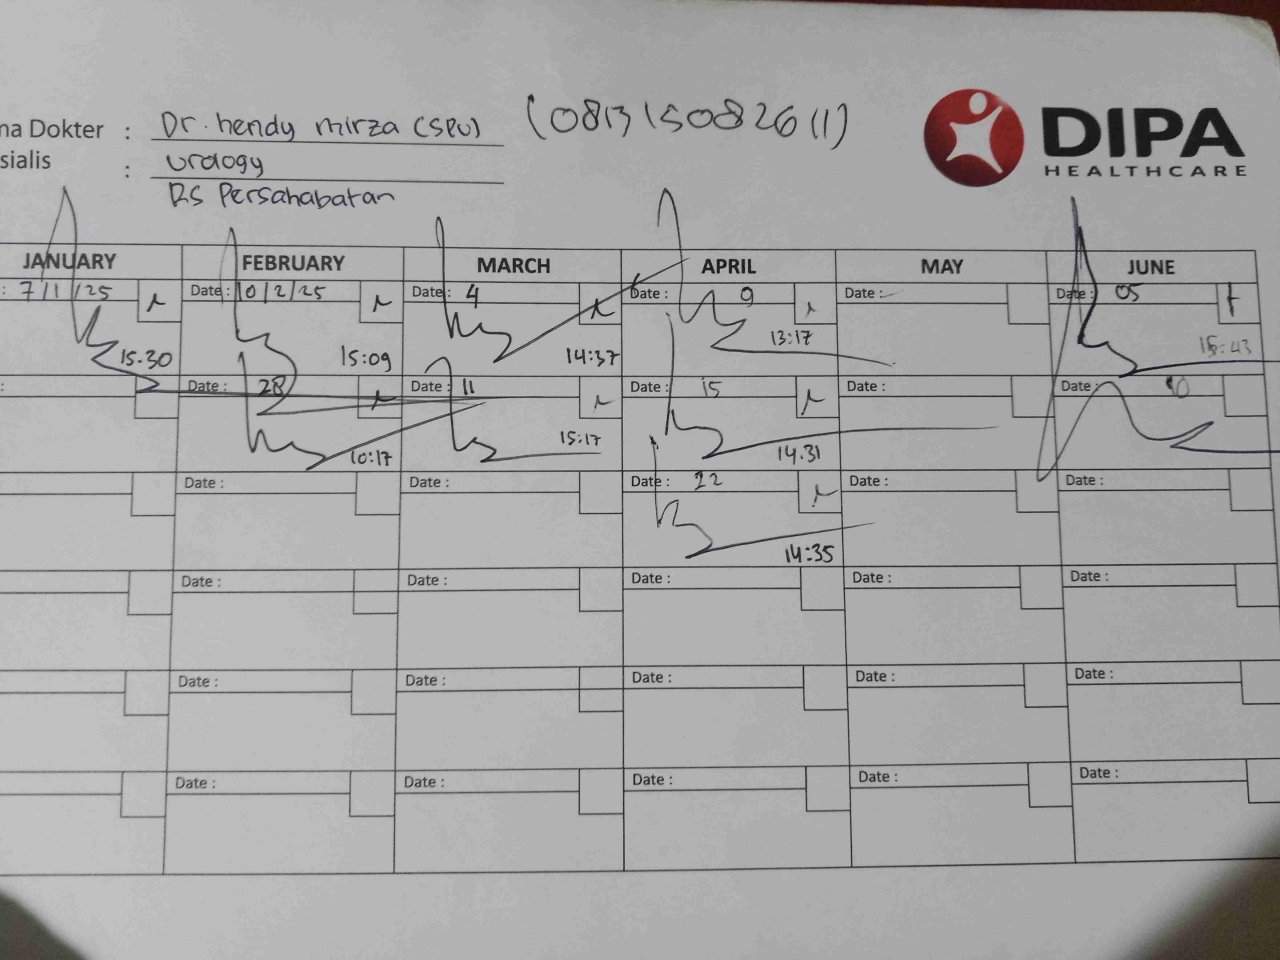 na Dokter : Dr. hendy mirza (SPU) (081315082611)
sialis : urology
RS Persahabatan
DIPA
HEALTHCARE
JANUARY FEBRUARY MARCH APRIL MAY JUNE
: 7/1/25 Date: 10/2/25 Date: 4 Date: 9 Date: Date: 05
15.30 15:09 14:37 13:17 15:43
: Date: 28 Date: 11 Date: 15 Date: Date: 10
10:17 15:17 14.31
Date: Date: Date: 22 Date: Date:
14:35
Date: Date: Date: Date: Date:
Date: Date: Date: Date: Date:
Date: Date: Date: Date: Date: